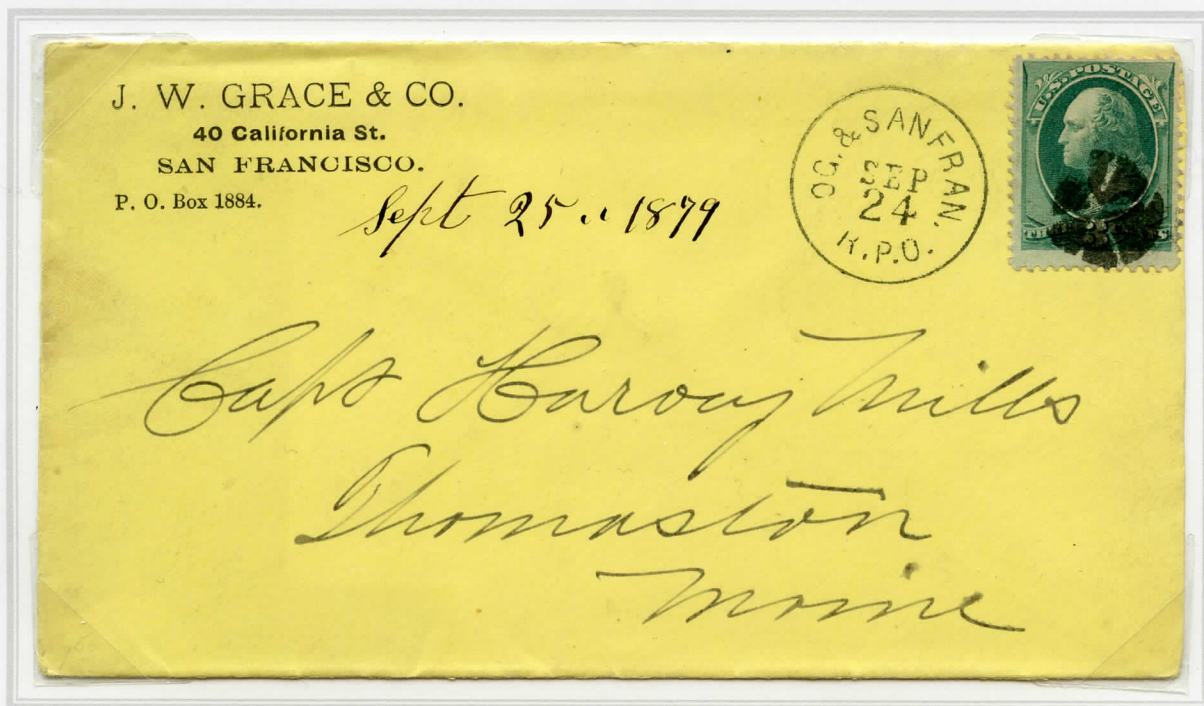 J. W. GRACE & CO.
40 California St.
SAN FRANCISCO.
P. O. Box 1884.
Sept 25 .. 1879
OG. & SAN FRAN.
SEP
24
R.P.O.
U.S. POSTAGE
Capt Harvey Mills
Thomaston
Maine